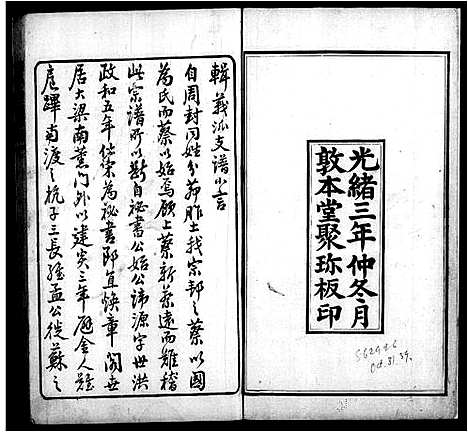 光緒三年仲冬月
敦本堂聚珍板印
562946
Oct. 31. 39.
輯義派支譜小言
自周封同姓分茆胙土我宗邦之蔡以國
為氏而蔡以始焉顧上蔡新蔡遠而難稽
此宗譜所以斷自秘書公始公諱源字世洪
政和五年仕宋為秘書郎直煥章閣世
居大梁南薰門外以建炎三年避金人難
扈蹕南渡之杭子三長孟公徙蘇之